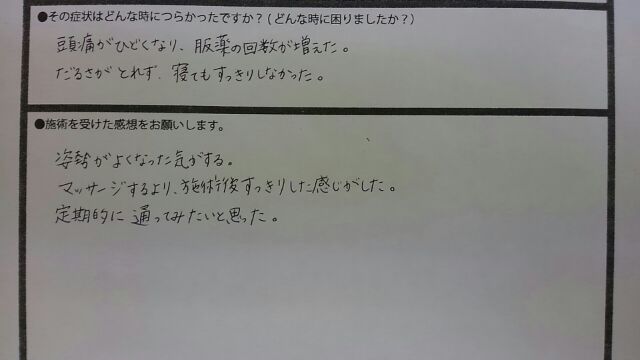 ●その症状はどんな時につらかったですか？(どんな時に困りましたか？)
頭痛がひどくなり、服薬の回数が増えた。
だるさがとれず、寝てもすっきりしなかった。
●施術を受けた感想をお願いします。
姿勢がよくなった気がする。
マッサージするより、施術後すっきりした感じがした。
定期的に通ってみたいと思った。